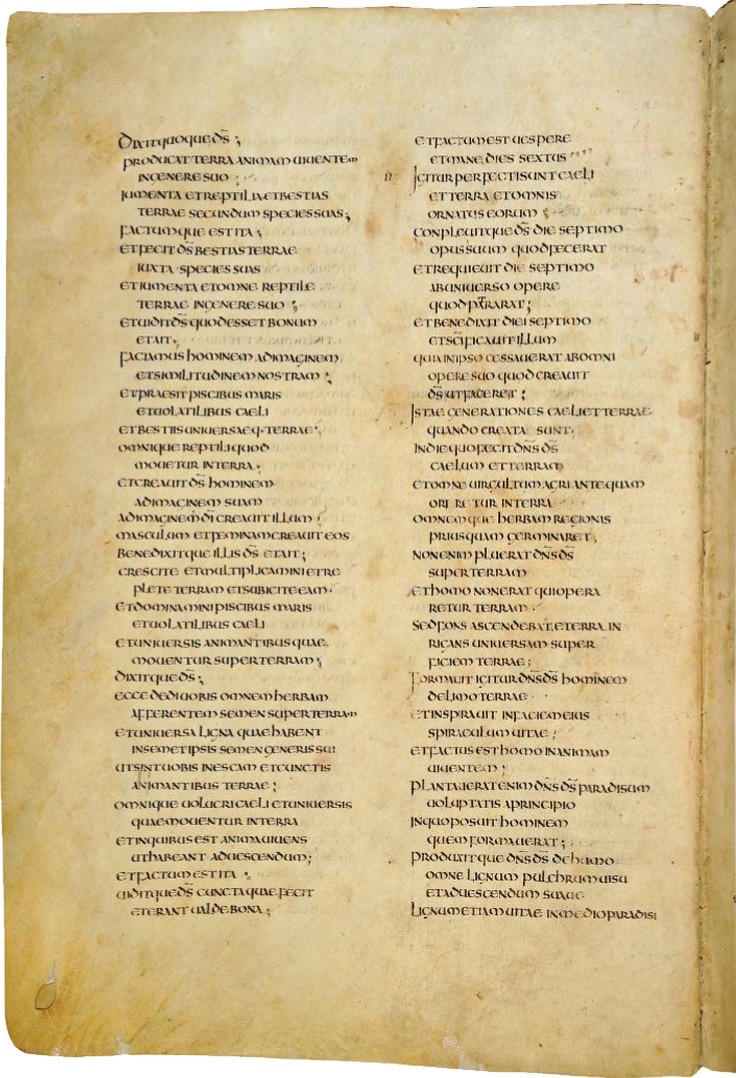 Dixitquoque ds̄
producat terra animam uiuentem
ingenere suo
iumenta et reptilia et bestias
terrae secundum species suas
factumque est ita
et fecit ds̄ bestias terrae
iuxta species suas
et iumenta et omne reptile
terrae ingenere suo
et uidit ds̄ quod esset bonum
et ait
faciamus hominem ad imaginem
et similitudinem nostram
et praesit piscibus maris
et uolatilibus caeli
et bestiis uniuersaeq· terrae
omnique reptili quod
mouetur in terra
et creauit ds̄ hominem
ad imaginem suam
ad imaginem dī creauit illum
masculum et feminam creauit eos
benedixitque illis ds̄ et ait
crescite et multiplicamini et re
plete terram et subicite eam
et dominamini piscibus maris
et uolatilibus caeli
et uniuersis animantibus quae
mouentur super terram
dixitque ds̄
ecce dedi uobis omnem herbam
afferentem semen super terram
et uniuersa ligna quae habent
in semet ipsis semen generis sui
ut sint uobis in escam et cunctis
animantibus terrae
omnique uolucri caeli et uniuersis
quae mouentur in terra
et in quibus est anima uiuens
ut habeant ad uescendum
et factum est ita
uiditque ds̄ cuncta quae fecit
et erant ualde bona
et factum est uespere
et mane dies sextus
II Igitur perfecti sunt caeli
et terra et omnis
ornatus eorum
conpleuitque ds̄ die septimo
opus suum quod fecerat
et requieuit die septimo
ab uniuerso opere
quod patrarat
et benedixit diei septimo
et scīficauit illum
quia in ipso cessauerat ab omni
opere suo quod creauit
ds̄ ut faceret
Istae generationes caeli et terrae
quando creata sunt
in die quo fecit dn̄s ds̄
caelum et terram
et omne uirgultum agri antequam
oriretur in terra
omnemque herbam regionis
priusquam germinaret
non enim pluerat dn̄s ds̄
super terram
et homo non erat qui opera
retur terram
sed fons ascendebat e terra in
rigans uniuersam super
ficiem terrae
Formauit igitur dn̄s ds̄ hominem
de limo terrae
et inspirauit in faciem eius
spiraculum uitae
et factus est homo in animam
uiuentem
plantauerat enim dn̄s ds̄ paradisum
uoluptatis a principio
in quo posuit hominem
quem formauerat
produxitque dn̄s ds̄ de humo
omne lignum pulchrum uisu
et ad uescendum suaue
lignum etiam uitae in medio paradisi